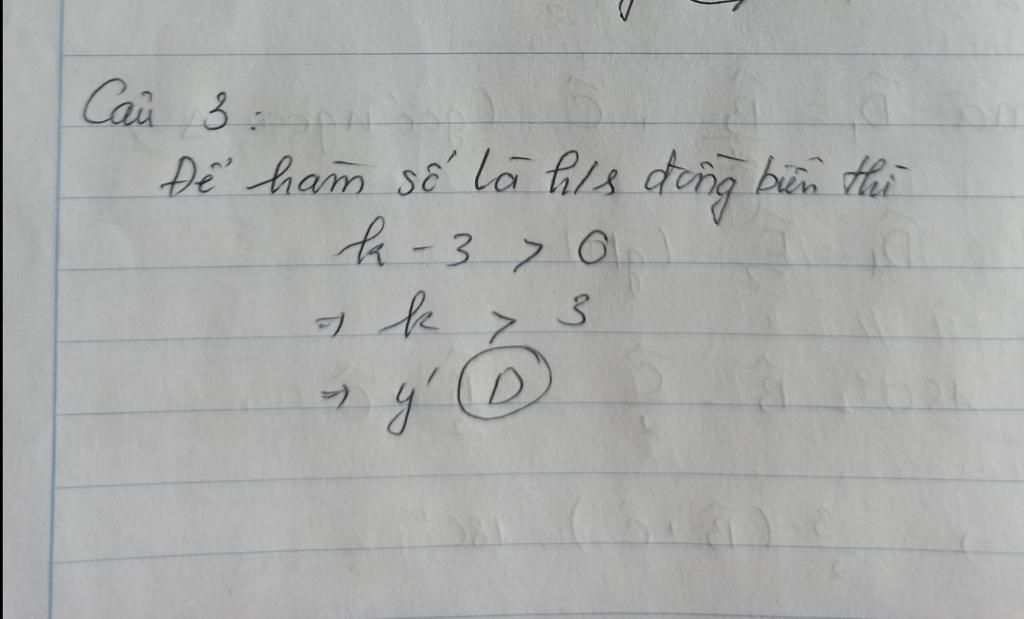 Câu 3:
Để hàm số là h/s đồng biến thì
k - 3 > 0
⇒ k > 3
⇒ ý D